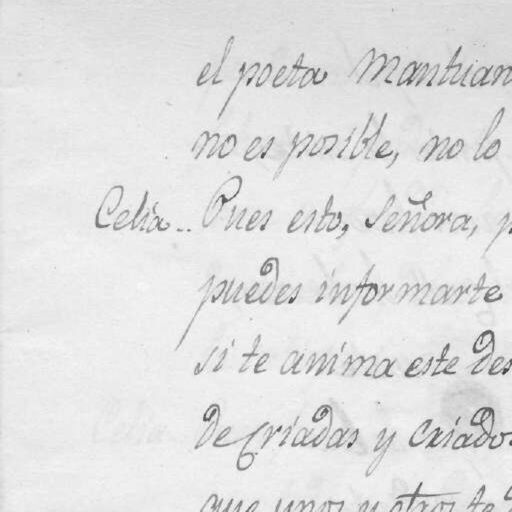 el poeta Mantuan
no es posible, no lo
Celia.. Pues esto, Señora, p
puedes informarte
si te anima este des
de Criadas y Criados
que unos y otros te